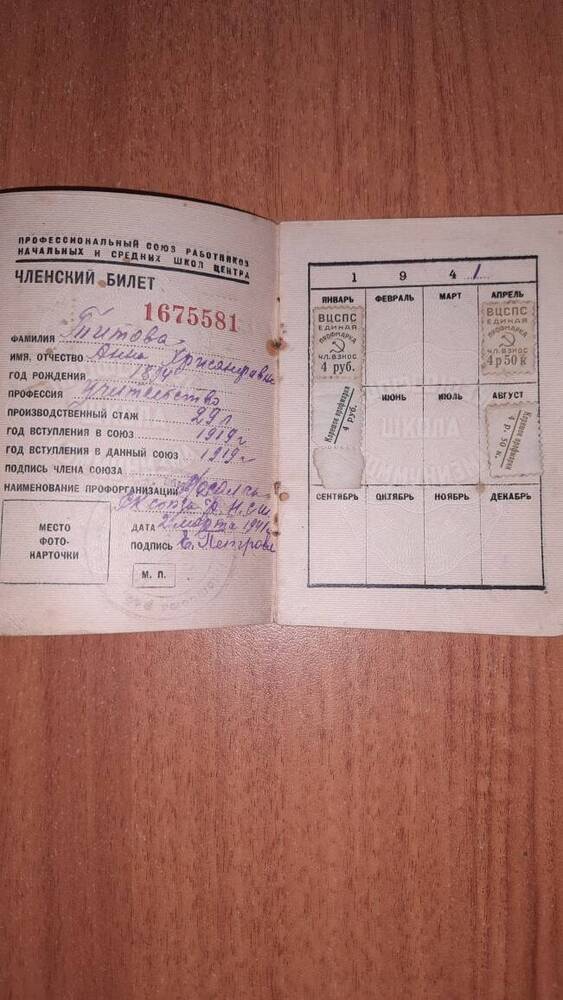 ПРОФЕССИОНАЛЬНЫЙ СОЮЗ РАБОТНИКОВ
НАЧАЛЬНЫХ И СРЕДНИХ ШКОЛ ЦЕНТРА
ЧЛЕНСКИЙ БИЛЕТ
1675581
ФАМИЛИЯ Титова
ИМЯ, ОТЧЕСТВО Анна
ГОД РОЖДЕНИЯ
ПРОФЕССИЯ учительство
ПРОИЗВОДСТВЕННЫЙ СТАЖ 29 л
ГОД ВСТУПЛЕНИЯ В СОЮЗ 1919 г
ГОД ВСТУПЛЕНИЯ В ДАННЫЙ СОЮЗ 1919 г
ПОДПИСЬ ЧЛЕНА СОЮЗА
НАИМЕНОВАНИЕ ПРОФОРГАНИЗАЦИИ
союза Р.Н.С.Ш.
МЕСТО
ФОТО-
КАРТОЧКИ
ДАТА 2 марта 1941 г
ПОДПИСЬ Е. Петрова
М. П.
1 9 4 1
ЯНВАРЬ ФЕВРАЛЬ МАРТ АПРЕЛЬ
ВЦСПС
ЕДИНАЯ
ПРОФМАРКА
ЧЛ. ВЗНОС
4 руб.
ВЦСПС
ЕДИНАЯ
ПРОФМАРКА
ЧЛ. ВЗНОС
4 р 50 к
ИЮНЬ ИЮЛЬ АВГУСТ
Корешок профмарки
4 руб.
Корешок профмарки
4 р. 50 к.
СЕНТЯБРЬ ОКТЯБРЬ НОЯБРЬ ДЕКАБРЬ